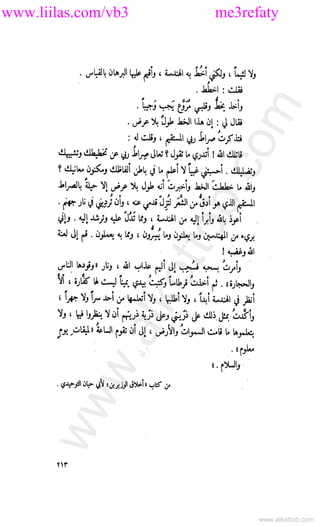 www.liilas.com/vb3 me3refaty
ولا لئيماً ، ولكني أخطُّ به الهندسة ، وأقيم عليها البرهان بالقياس .
فقلت : اخطط .
وأخذ يخُطُّ وقلبي مُرَوَّع يَجِب وَجِيباً .
فقال لي : إن هذا الخط طولٌ بلا عرض .
فتذكرتُ صراطَ ربي المستقيم ، وقلت له :
قاتلك الله ! أتدري ما تقول ؟ تعالى صِراطُ ربي عن تخطيطك وتشبيهك
وتضليلك . أحسبتني غبياً لا أعلم ما في باطن ألفاظك ومكنون معانيك ؟
والله ما خططتَ الخط وأخبرتَ أنه طول بلا عرض إلا حيلةً بالصراط
المستقيم الذي هو أدقُّ من الشَّعَر لتُزِلَّ قدمي عنه ، وأن ترديني في نار جهنم .
أعوذ بالله وأبرأ إليه من الهندسة ، ومما تدُلُّ عليه وترشد إليه . وإني
بريء من المهندسين وما يعلنون وما يُسِرُّون ، ومما به يعملون . قم إلى لعنة
الله وغضبه !
وأمرتُ بسحبه فسُحِب إلى أليم عذاب الله ، ونار «وقودها الناس
والحجارة» . ثم أخذتُ قرطاساً وكتبتُ بيدي يميناً ليست لها كفّارة ، ألاَّ
أنظر في الهندسة أبداً ، ولا أطلبها ، ولا أتعلمها من أحد سراً ولا جهراً ؛
وأكّدتُ بمثل ذلك على ذُرّيتي وعلى ذرية ذريتهم أن لا ينظروا فيها ، ولا
يتعلموها ما قامت السموات والأرض ، إلى أن تقوم الساعةُ «لميقات يوم
معلوم» .
والسلام» .
من كتاب «أخلاق الوزيرين» لأبي حيان التوحيدي .
٢١٣
www.alkottob.com